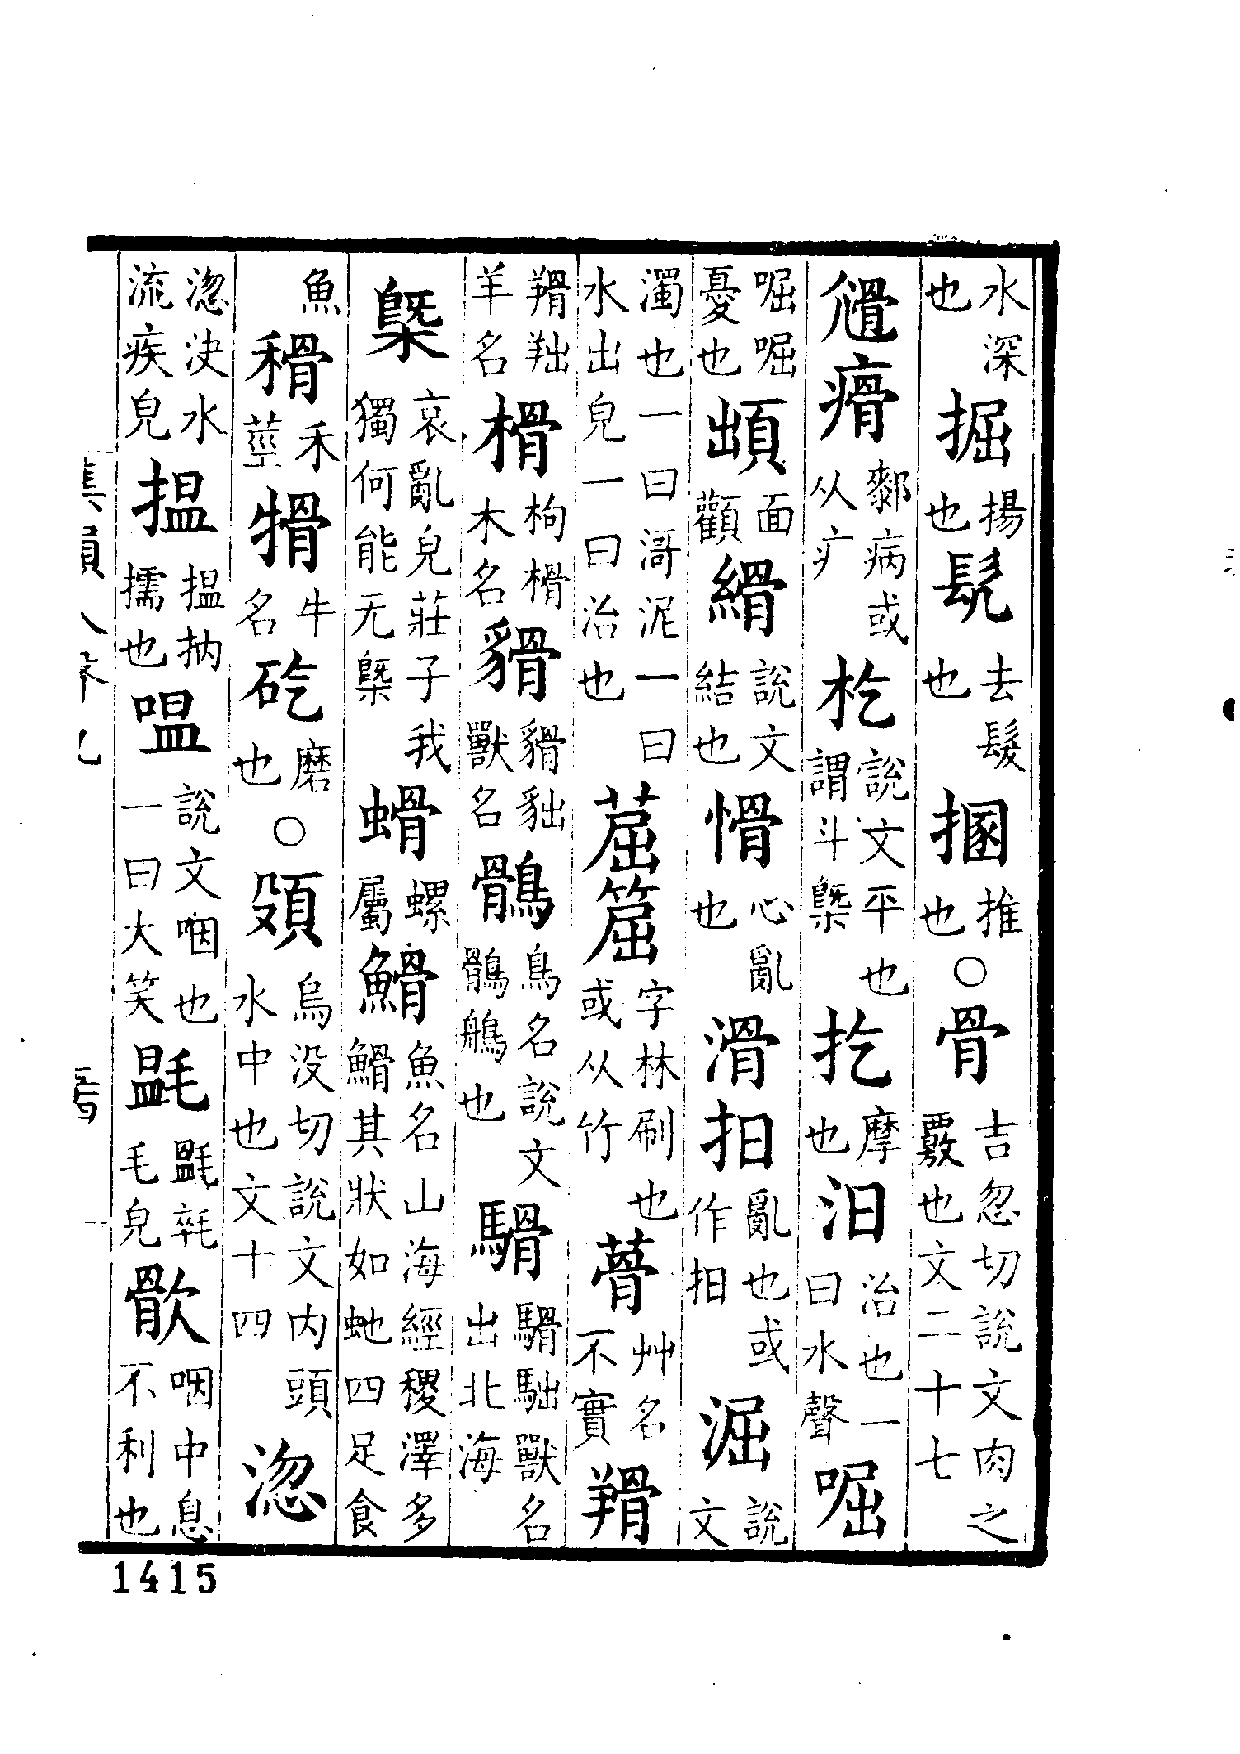 水深也掘揚也髡去髮也掴推也○骨吉忽切説文肉之覈也文二十七
尳瘠鄹病或从疒杚説文平也謂斗槩扢摩也汩治也一曰水聲啒
啒啒憂也䪼面顴縎説文結也愲心亂也滑抇亂也或作抇淈説文
濁也一曰滒泥一曰水出皃一曰治也䓛䈅字林刷也或从竹蓇艸名不實𦞠
羊名榾枸榾木名貀獸名鶻鳥名説文鶻鵃也騔獸名出北海
槩哀亂皃莊子我獨何能无槩螖螺屬䱻魚名山海經稷澤多䱻其狀如虵四足食
魚䅥禾莖㹊牛名矻磨也○頞烏没切説文内頭水中也文十四淴
淴泱水流疾皃搵搵抐擩也嗢説文咽也一曰大笑㲲毛皃㱇咽中息不利也
1415